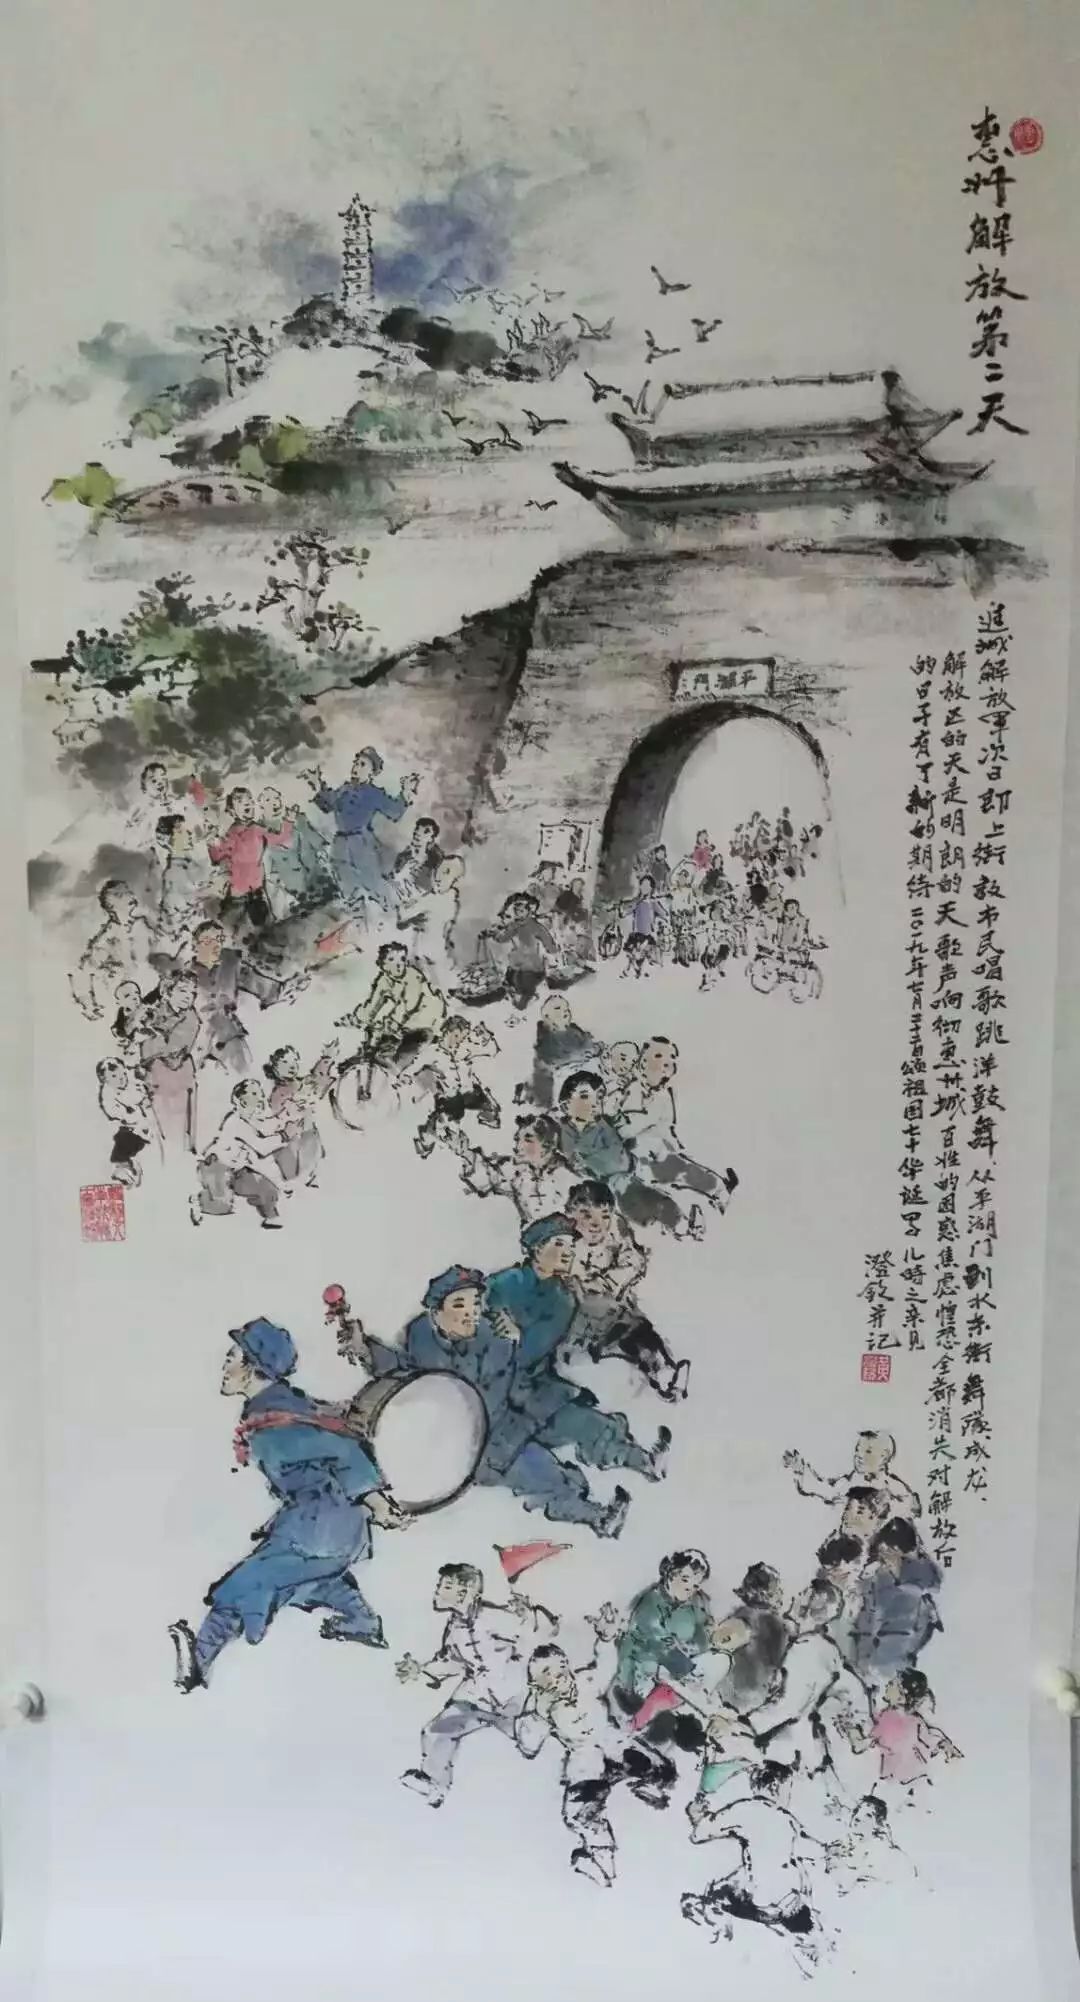 惠州解放第二天
进城解放军次日即上街教市民唱歌跳洋鼓舞、从平湖门到水东街舞队成龙、
解放区的天是明朗的天歌声响彻惠州城百姓的困惑焦虑惶恐全都消失对解放后
的日子有了新的期待二〇一九年七月二十二日颂祖国七十华诞写儿時之亲见
澄钦并记
平湖門